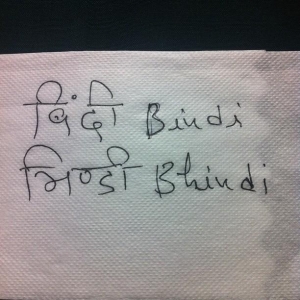 बिंदी Bindi
भिण्डी Bhindi